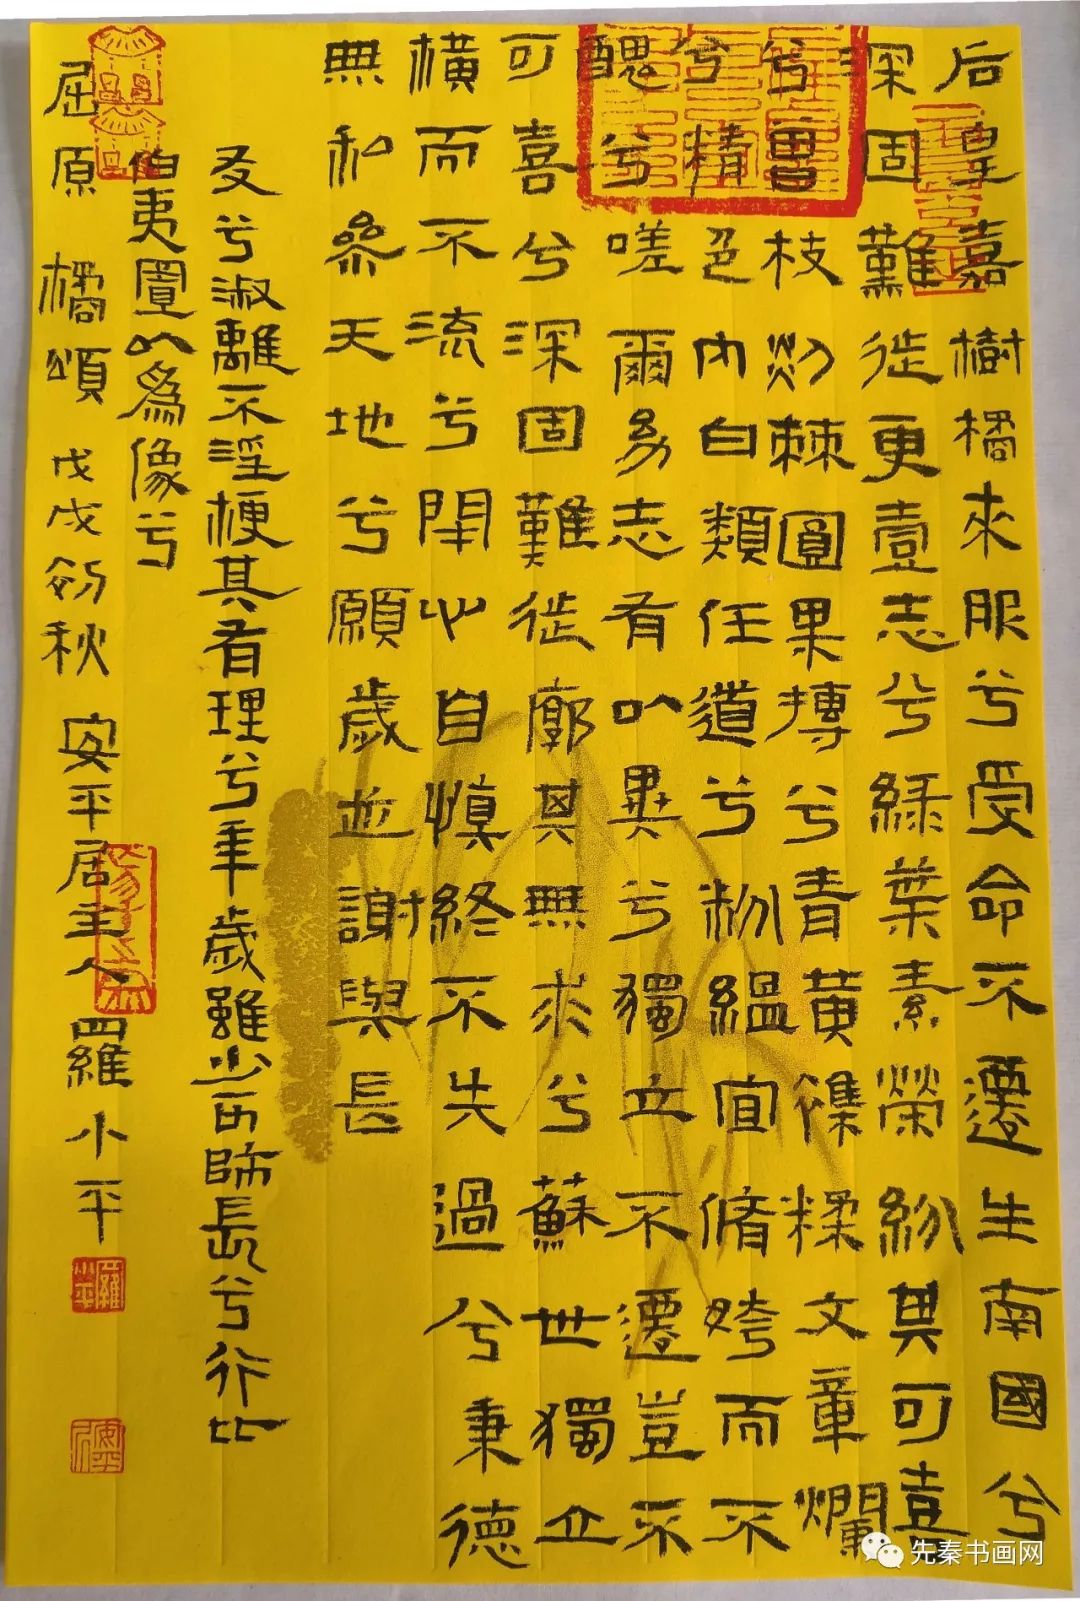 后皇嘉樹橘來服兮受命不遷生南國兮
深固難徙更壹志兮綠葉素榮紛其可喜
兮曾枝剡棘圓果摶兮青黃襍糅文章爛
兮精色內白類任道兮粉縕宜脩姱而不
醜兮嗟爾幼志有以異兮獨立不遷豈不
可喜兮深固難徙廓其無求兮蘇世獨立
橫而不流兮閉心自慎終不失過兮秉德
無私參天地兮願歲並謝與長
友兮淑離不淫梗其有理兮年歲雖少可師長兮行比
伯夷置以為像兮
屈原 橘頌 戊戌初秋 安平居主人 羅小平
羅小平
先秦书画网